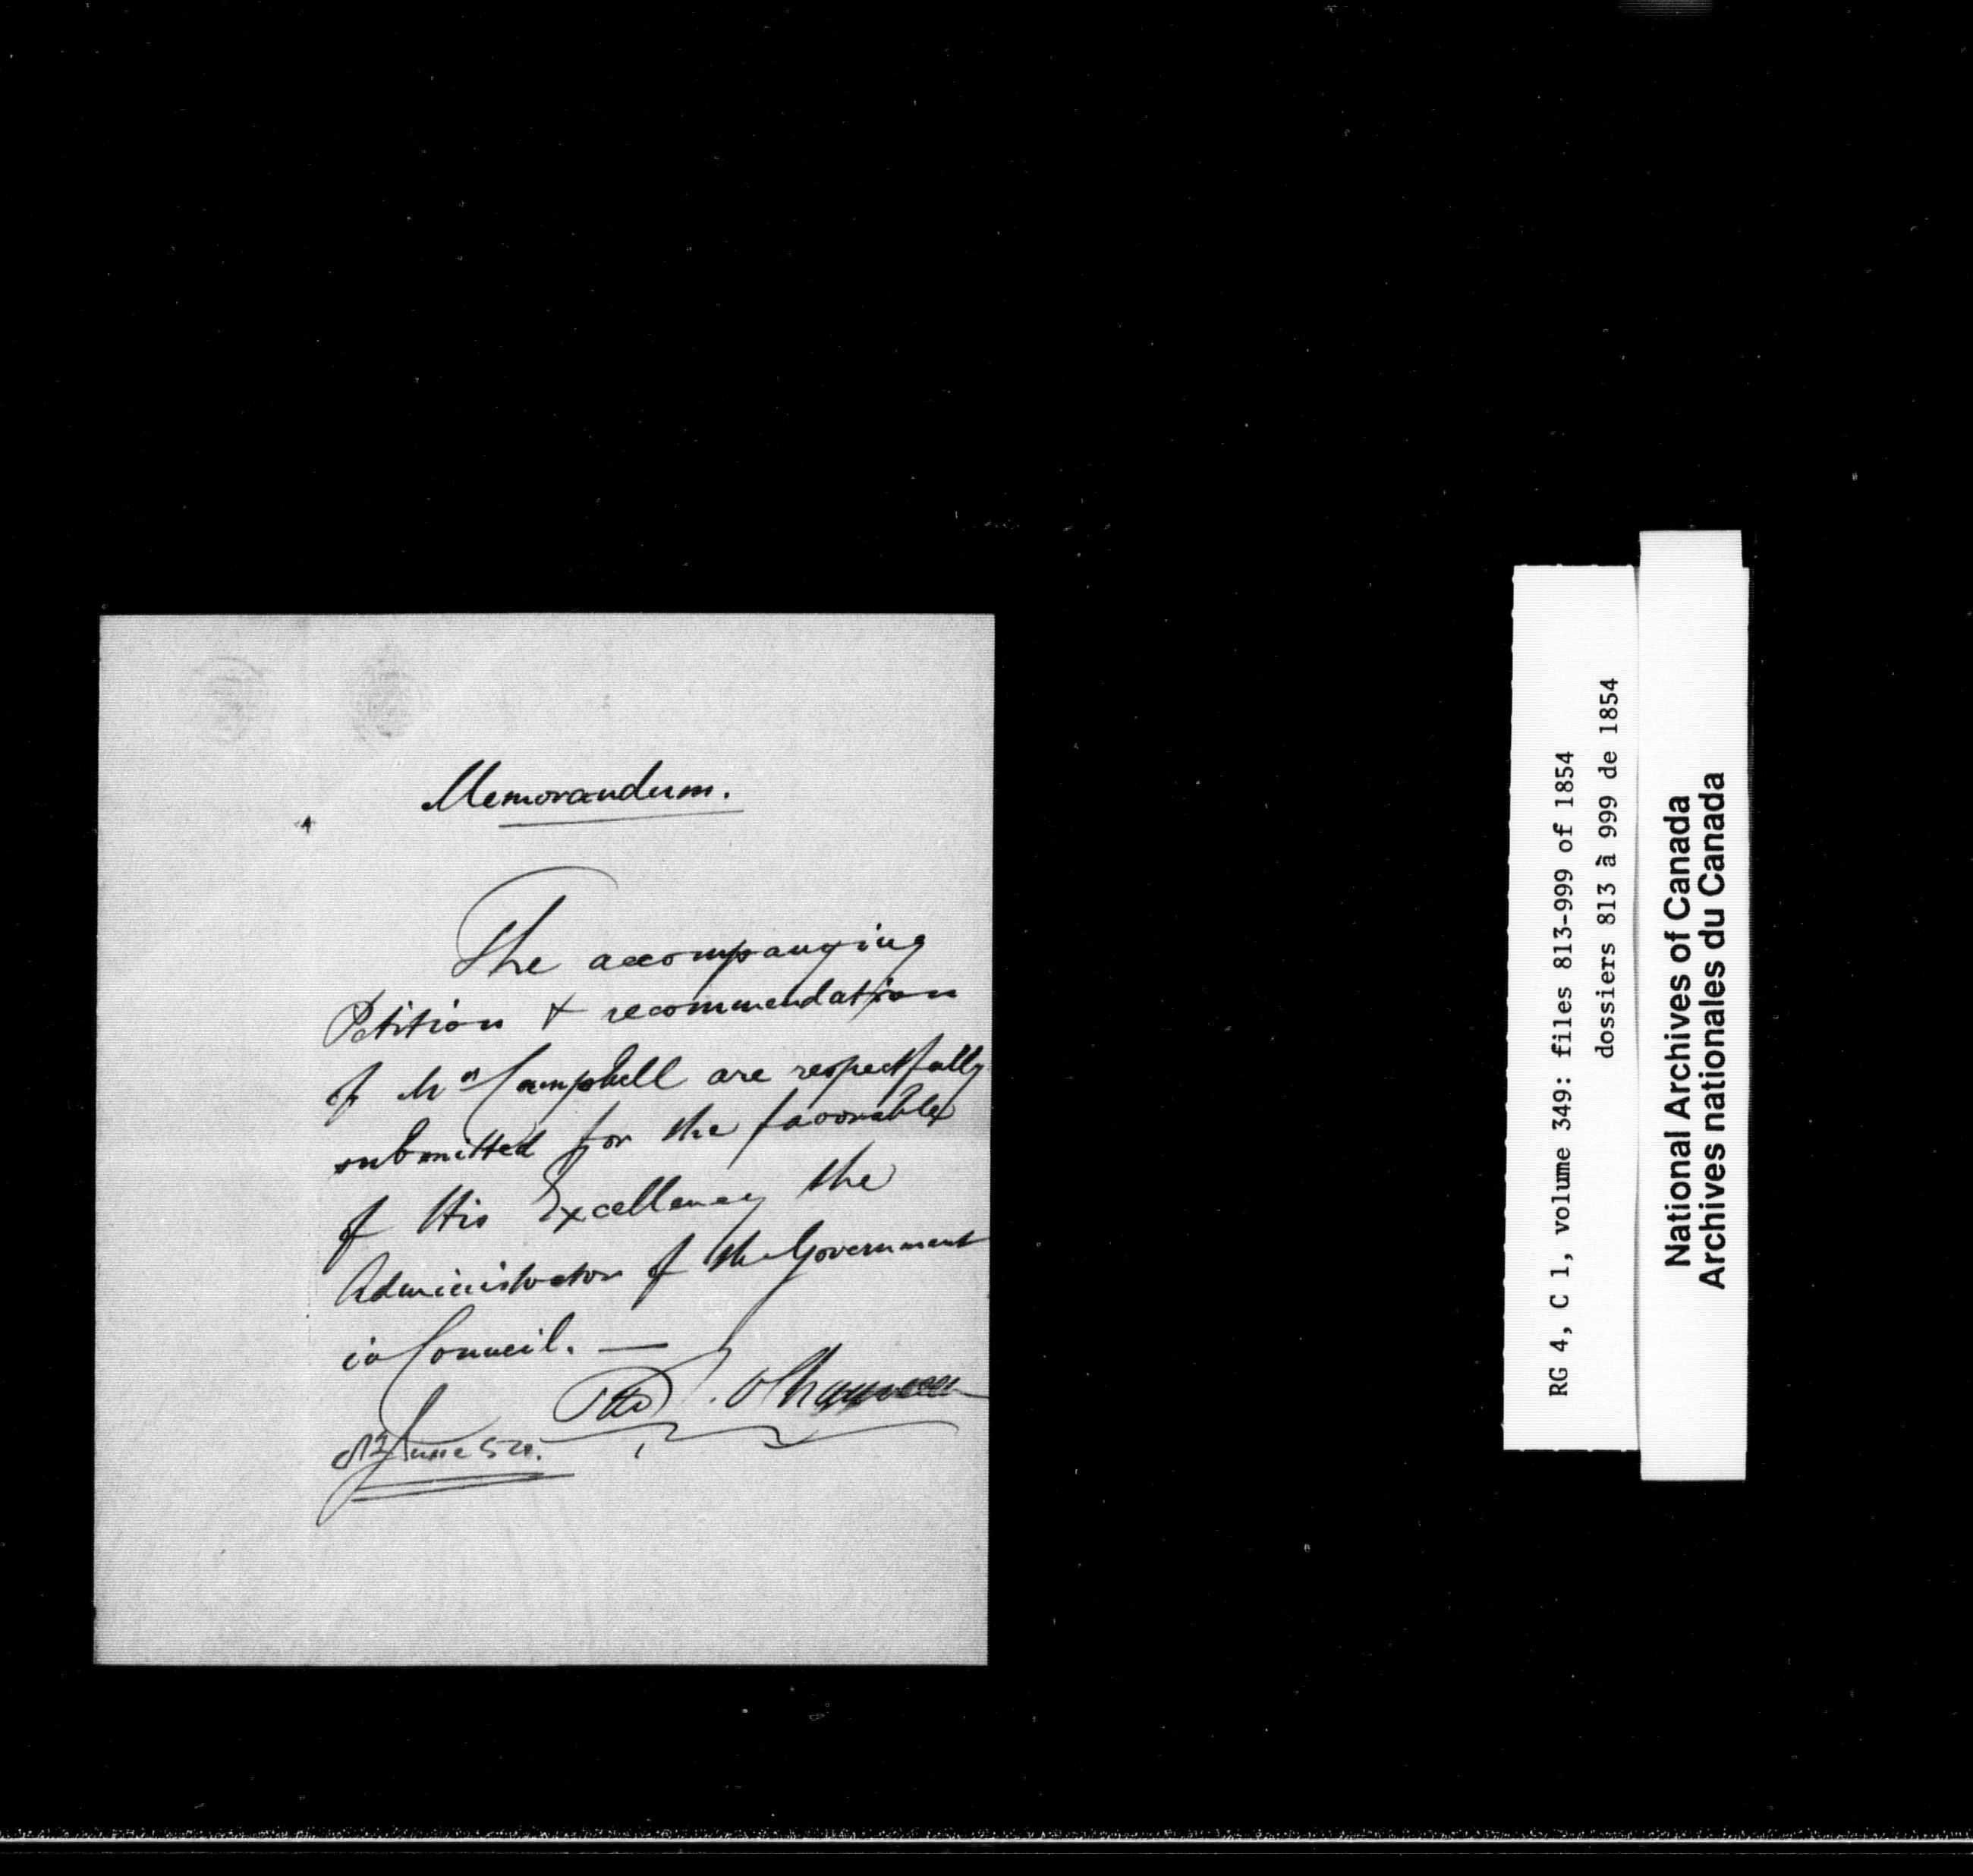 Memorandum.
The accompanying
Petition & recommendation
of Mrs Campbell are respectfully
submitted for the favorable
of His Excellency the
Administrator of the Government
in Council. —
P. J. O Chauveau
June 54.
RG 4, C 1, volume 349: files 813-999 of 1854
dossiers 813 à 999 de 1854
National Archives of Canada
Archives nationales du Canada